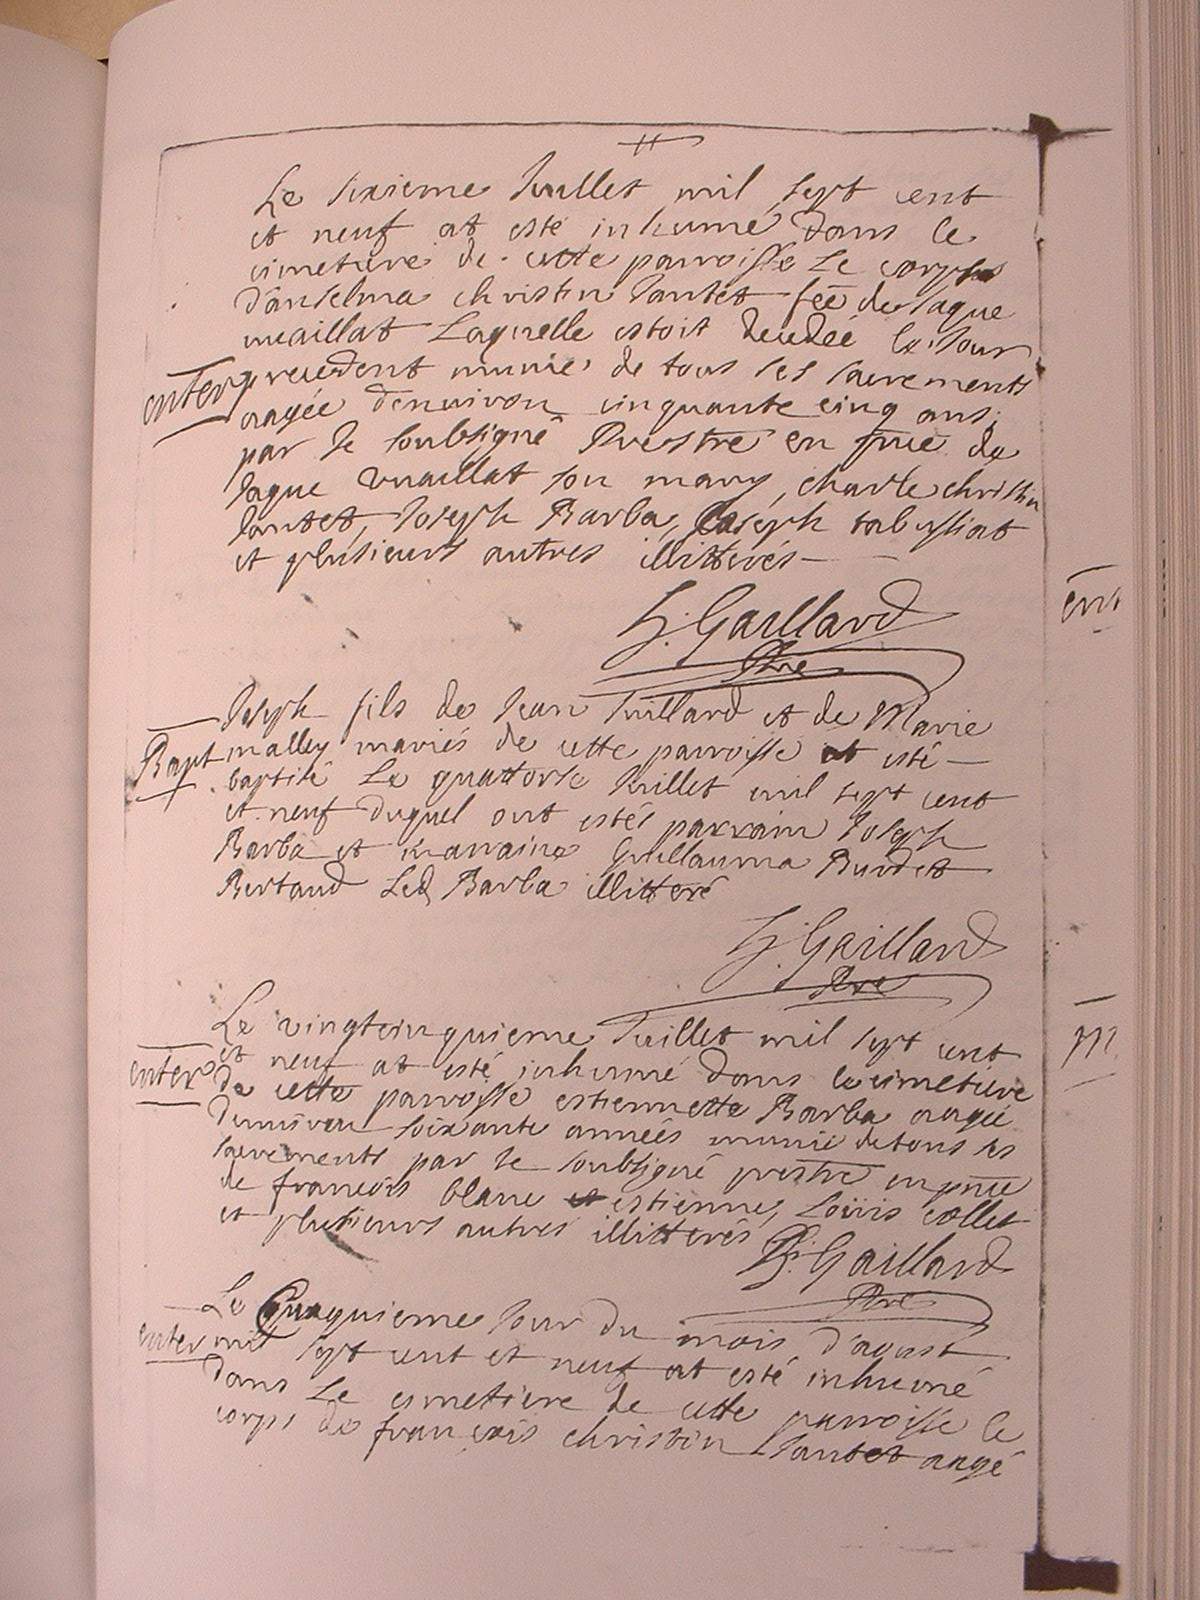 Le sixieme Juillet mil sept cent
et neuf at esté inhumé dans le
cimetiere de cette parroisse Le corps
d'anselma christin Jantet fēē de Jaque
vuaillat Laquelle estoit decedée le Jour
enter precedent munie de tous ses sacrements
aagée denuiron cinquante cinq ans
par Je soubsigné Prestre en pñce de
Jaque vuaillat son mary, charle christin
Jantet, Joseph Barba, Joseph tabussiat
et plusieurs autres illitterés
ent
h. Gaillard
Pbre
Joseph fils de Jean Juillard et de Marie
Bapt malley mariés de cette parroisse at esté
baptisé Le quattorse Juillet mil sept cent
et neuf duquel ont estés parrain Joseph
Barba et marraine Guillauma Burdet
Bertand Led Barba illitteré
h. Gaillard
Pbre
Le vingtcinquieme Juillet mil sept cent
m
enter et neuf at esté inhumé dans le cimetiere
de cette parroisse estiennette Barba aagée
denuiron soixante années munie de tous ses
sacrements par Je soubsigné prestre en pñce
de francois blanc estienne, Loüis collet
et plusieurs autres illitterés
h. Gaillard
Pbre
Le cinquieme Jour du mois d'aoust
enter mil sept cent et neuf at esté inhumé
dans Le cimetiere de cette parroisse le
corps de francois christin Jantet aagé